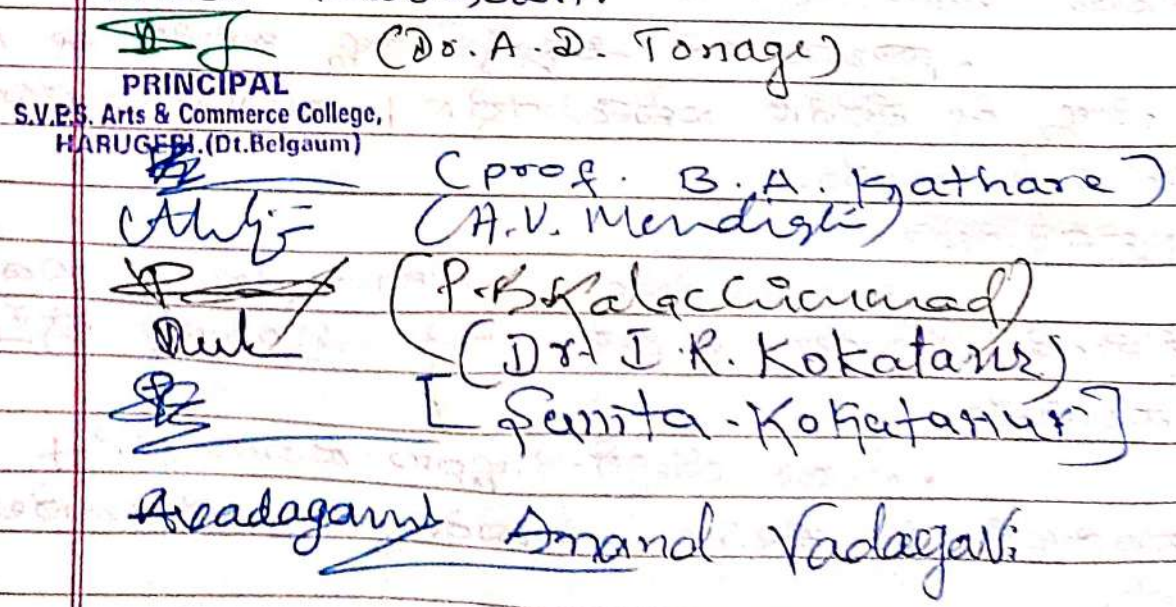 (Dr. A. D. Tonage)
PRINCIPAL
S.V.E.S. Arts & Commerce College,
HARUGERI.(Dt.Belgaum)
(prof. B.A. Kathare)
(A.V. Mendigli)
(P.B
(Dr. I.R. Kokatanr)
[Sunita - Kokatanur]
Anand Vadagavi